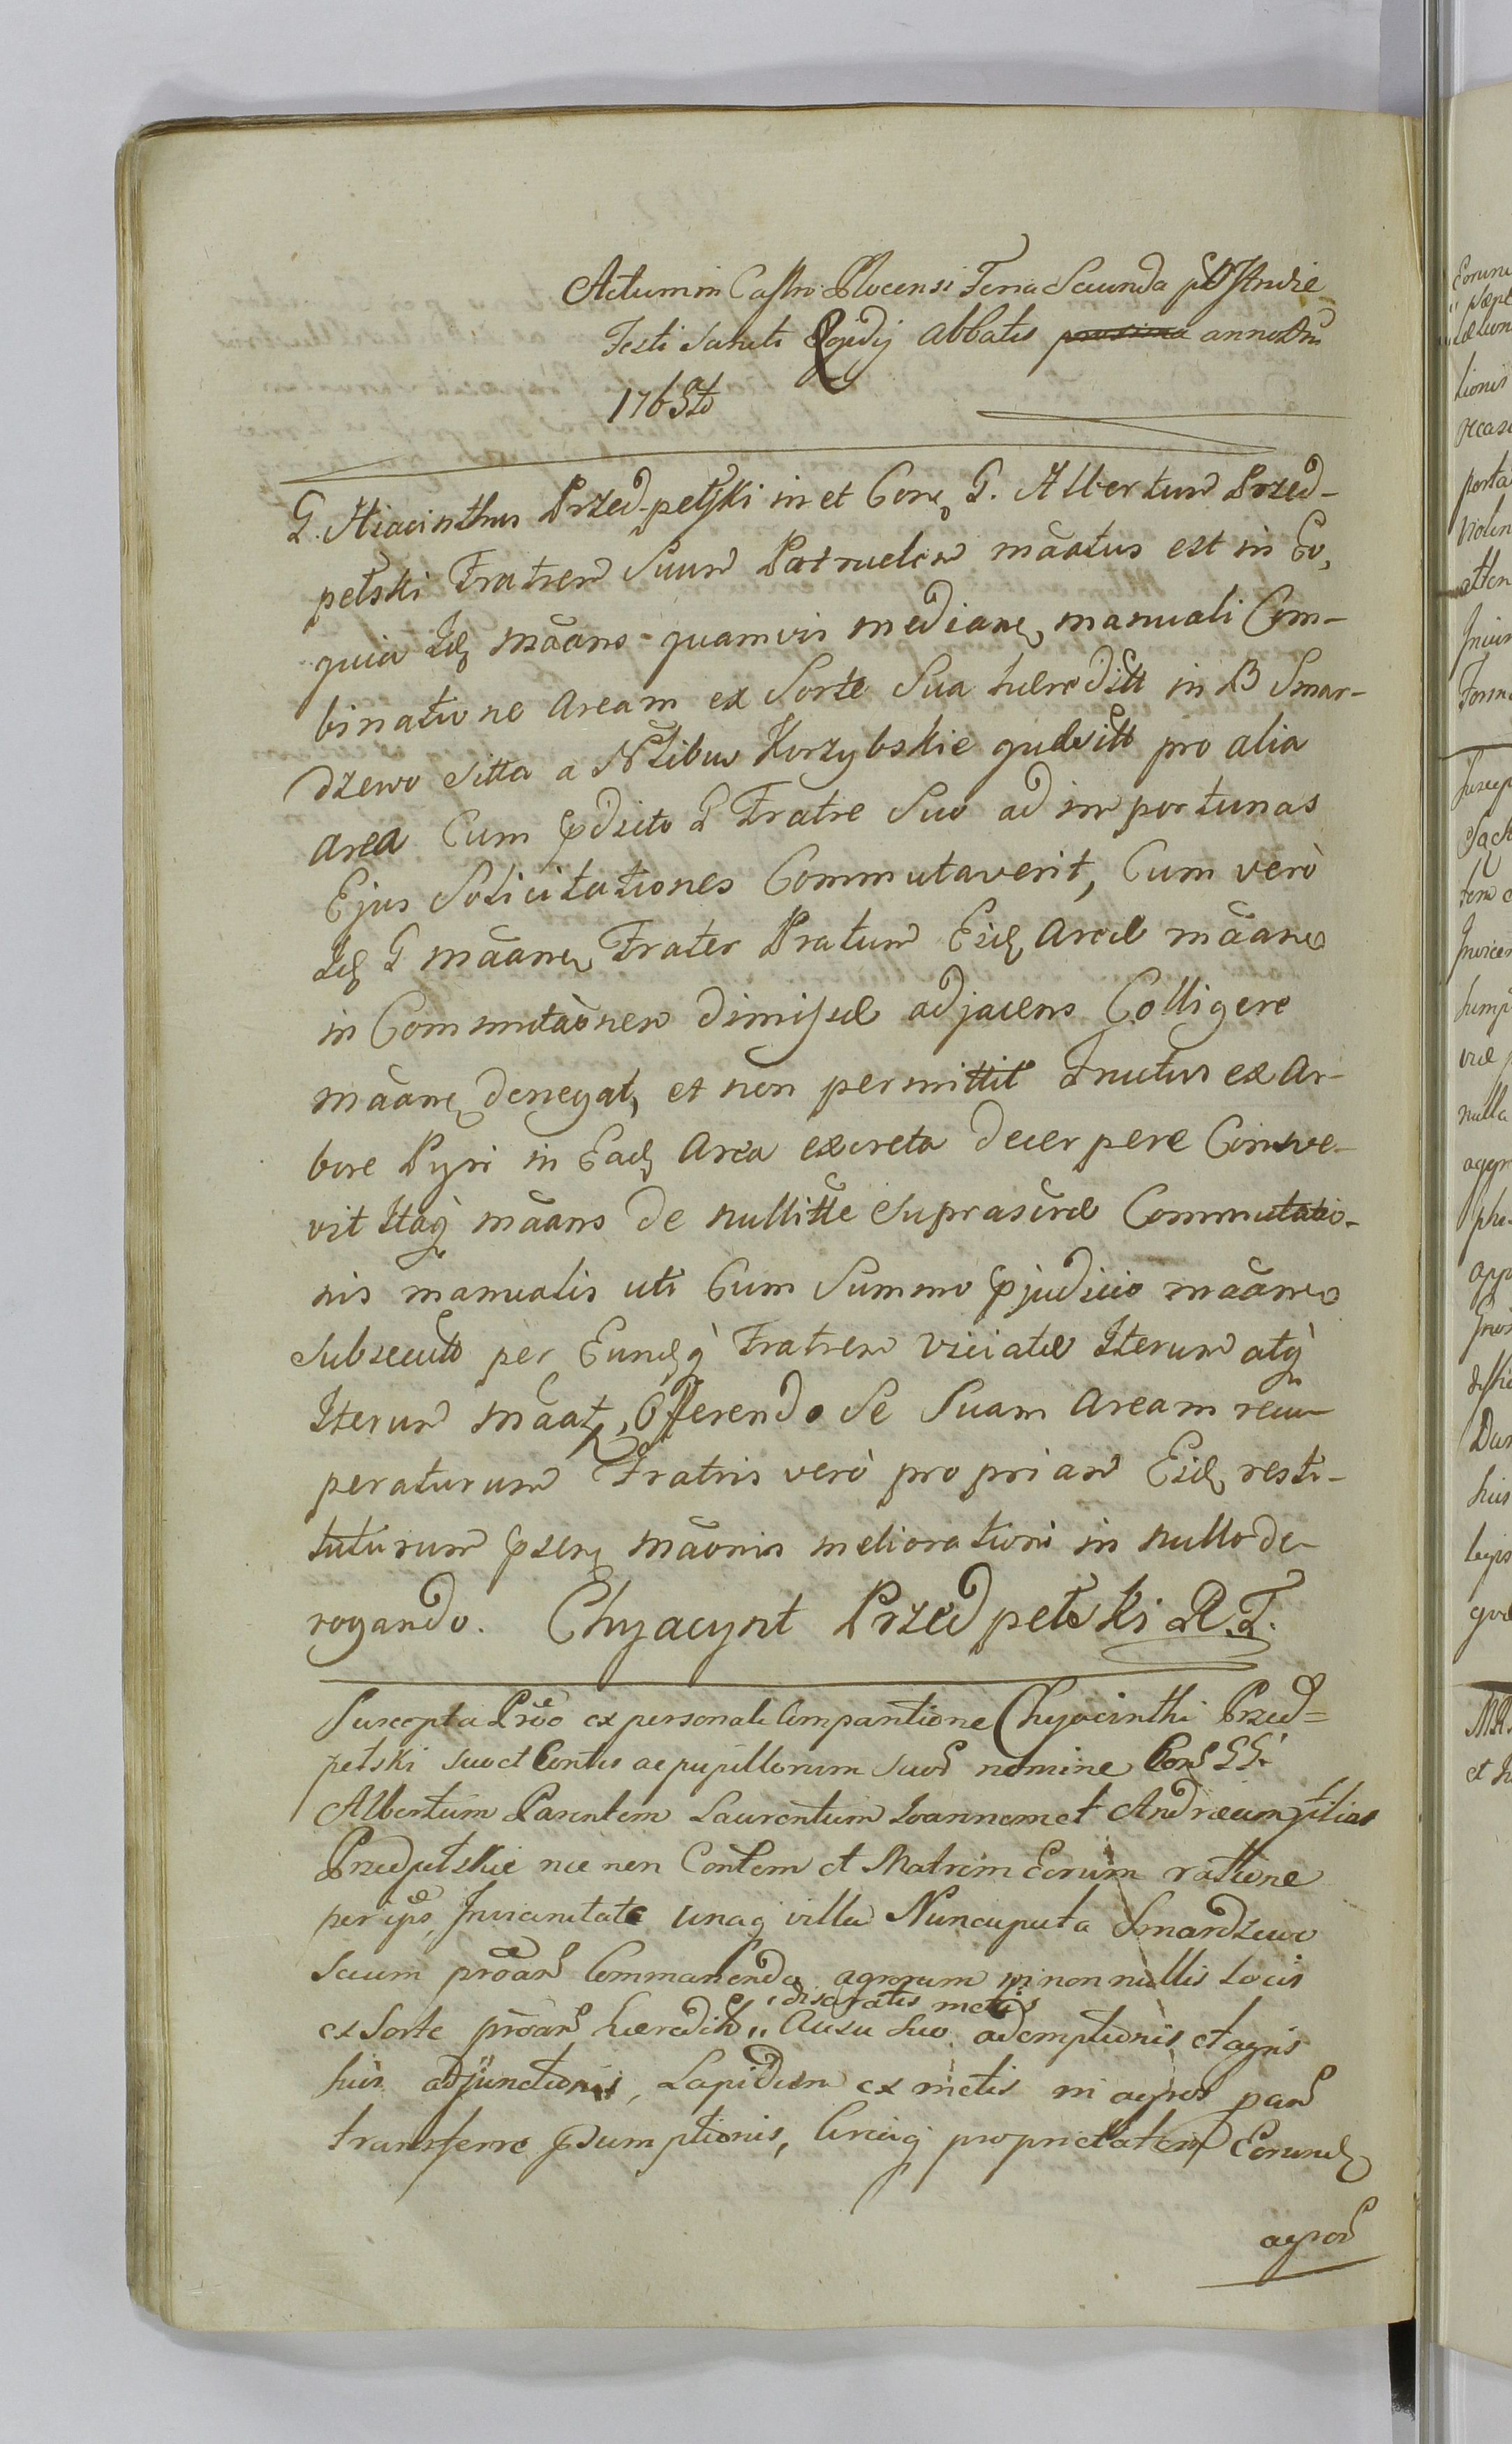 Actum in Castro Plocensi Feria Secunda postridie
Festi Sancti Egidij abbatis proxima anno Dni
1765to
G. Hiacinthus Przed-pełski in et Cone G. Albertum Przed-
pełski Fratrem Suum Patruelem mãatus est in Eo,
quia Id mãans quamvis mediane manuali Com-
binatione aream ex Sorte Sua hæreditt in B Smar-
dzewo sitta a Nlibus Korzybskie quæsitt pro alia
area Cum pdicto G Fratre Suo ad importunas
Ejus Solicitationes Commutaverit, Cum verò
Id G mãane Frater Pratum Eid areæ mãane
in Commutãonem dimissæ adjacens Colligere
mãane denegat, et non permittit Fructus ex Ar-
bore Pyri in Ead Area excreta decerpere Consve-
vit Itaq mãans de nullitte suprascræ Commutatio-
nis manualis uti Cum Summo pjudicio mãane
subsecutt per Eundq Fratrem viciatæ Iterum atq
Iterum mãat, Offerendo Se Suam Aream recu-
peraturum Fratris verò propriam Eid resti-
tuturum pseñ mãonis meliorationi in nullo de-
rogando. Chyacynt Przedpełski R.T.
Suscepta Prõo ex personali Comparitione Chyacinthi Przed=
pełski suo et Contis ac pupillorum suor nomine Con GG.
Albertum Parentem Laurentium Ioannem et Andream filios
Przedpełskie nec non Contem et Matrem Eorum ratione
per ips Invicinitate unaq villa Nuncupata Smardzewo
Secum prõan Commanenda agrorum in non nullis Locis
disgratis metis
ex Sorte prõan hæredit,, Ausu suo ademptionis et agris
suis adjunctionis, Lapidum ex metis in agros pan
transferre psumptionis, Circaq proprietatem Eorund
agror